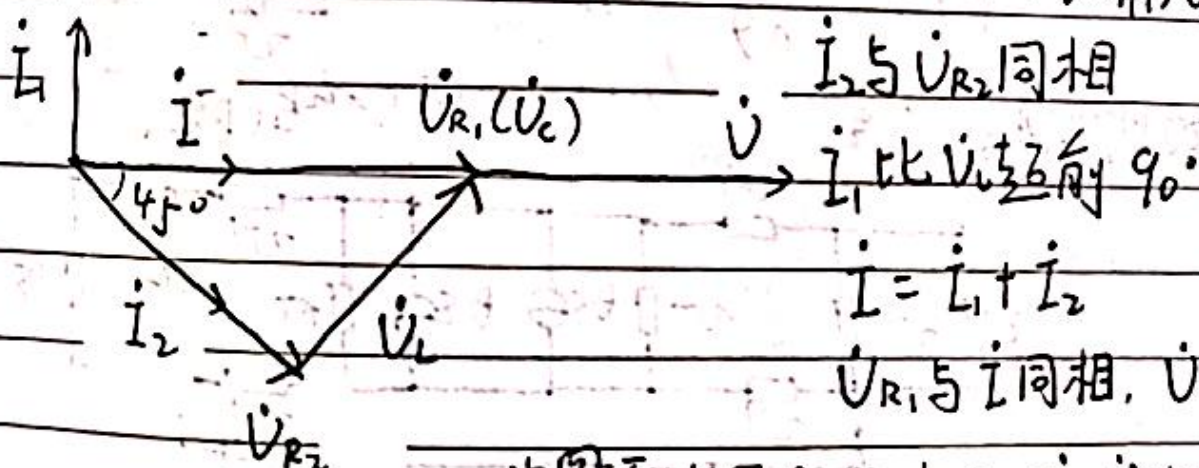 İ₁
İ
U̇R₁(U̇c)
U̇
45°
İ₂
U̇L
U̇R₂
İ₂与U̇R₂同相
İ₁比U̇c超前90°
İ=İ₁+İ₂
U̇R₁与İ同相. U̇